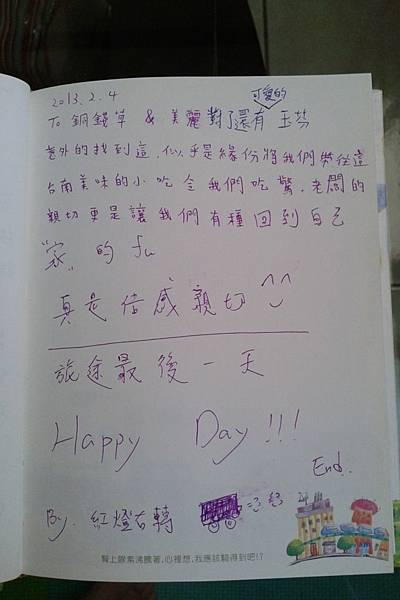 2013.2.4
可愛的
To 銅錢草 & 美麗對了還有 玉芬
意外的找到這,似乎是緣份將我們帶往這
台南美味的小吃令我們吃驚,老闆的
親切更是讓我們有種回到自己
"家"的 fu
真是倍感親切 ^^
旅途最後一天
Happy Day!!!
End.
By. 紅燈右轉
腎上腺素沸騰著,心裡想,我應該騎得到吧!?